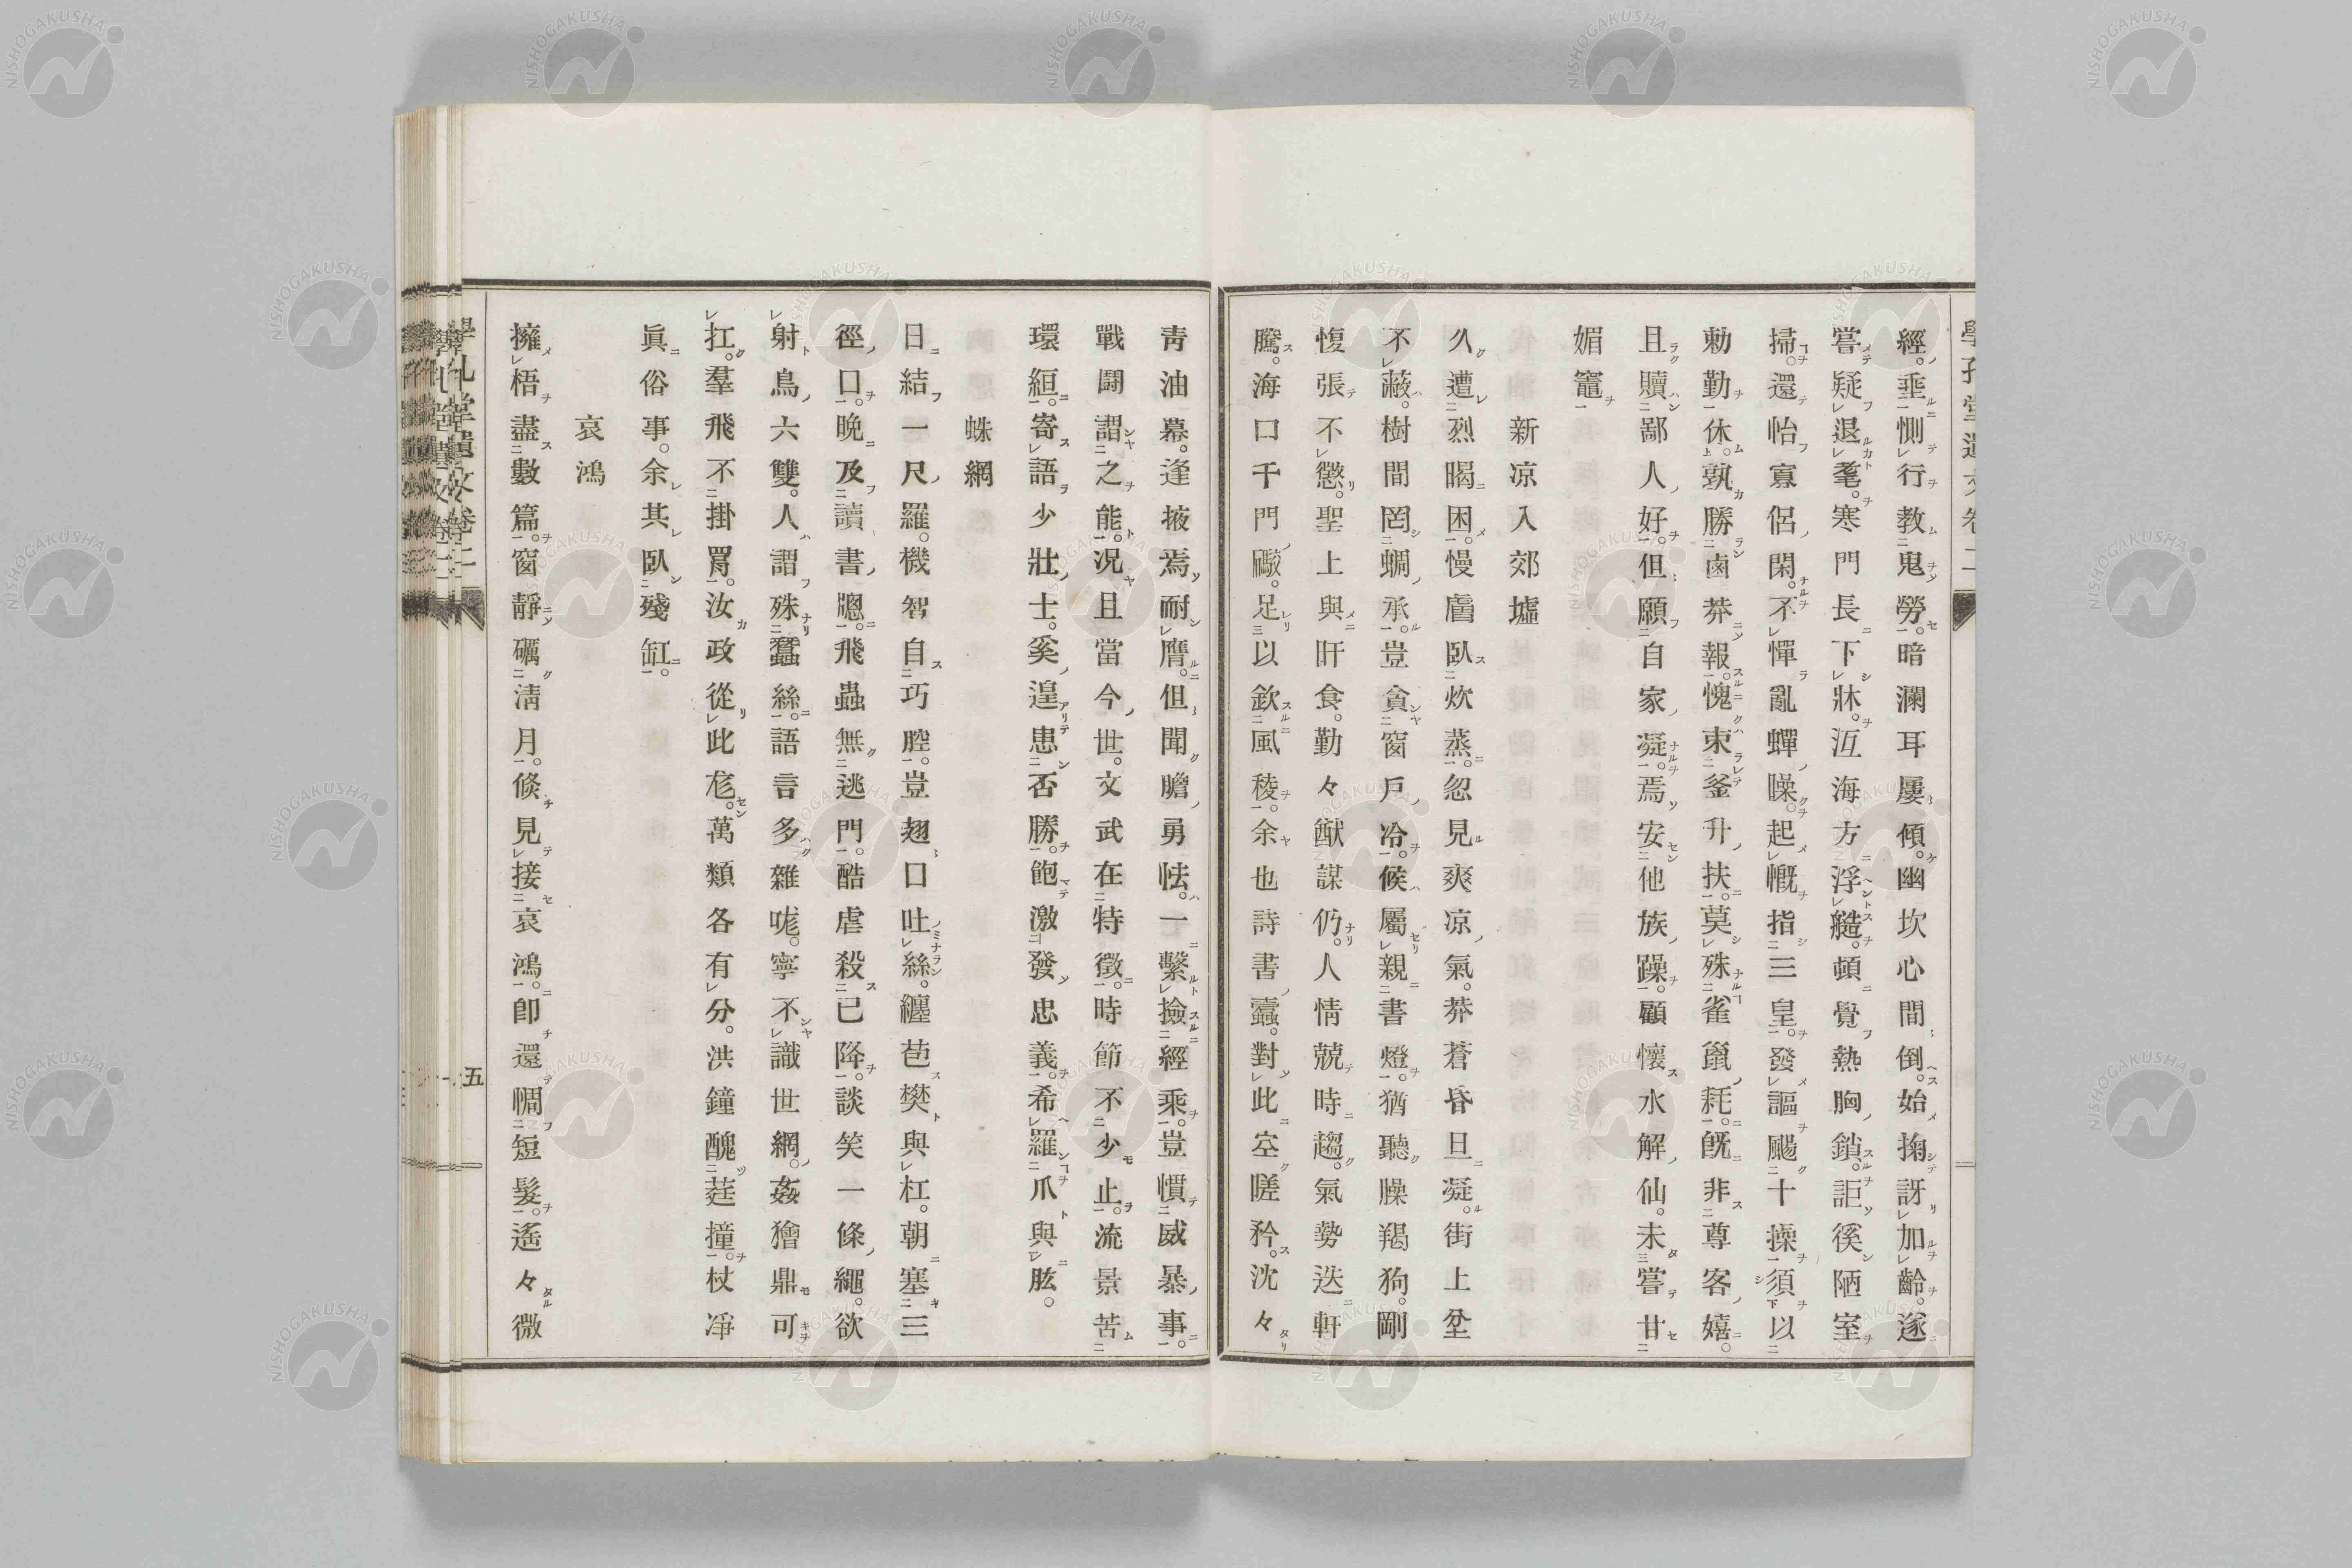 經。垂惻行教鬼勞。暗瀾耳屢傾。幽坎心間倒。始掬訝加齡。遂
嘗疑退耄。寒門長下牀。沍海方浮艁。頓覺熱胸鎖。詎徯陋室
掃。還怡寡侶閑。不憚亂蟬臊。起慨指三皇。發謳颺十操。須以
勅勤休。孰勝鹵莽報。愧束釜升扶。莫殊雀鼠耗。既非尊客嬉。
且贖鄙人好。但願自家凝。焉安他族躁。顧懷水解仙。未嘗甘
媚竈
新凉入郊墟
久遭烈暍困。慢膚臥炊蒸。忽見爽凉氣。莽蒼昏旦凝。街上坌
不蔽。樹間罔蜩承。豈貪窗戶冷。候屬親書燈。猶聽臊羯狗。剛
愎張不懲。聖上與旰食。勤々猷謀仍。人情兢時趨。氣勢迭軒
騰。海口千門礮。足以欽風稜。余也詩書蠹。對此空嗟矜。沈々
靑油幕。逢掖焉耐膺。但聞膽勇怯。一繫撿經乘。豈慣威暴事。
戰鬪謂之能。况且當今世。文武在特徵。時節不少止。流景苦
環絚。寄語少壯士。奚遑患否勝。飽激發忠義。希羅爪與肱。
蛛網
日結一尺羅。機智自巧腔。豈翅口吐絲。纏芭樊與杠。朝塞三
徑口。晩及讀書牕。飛蟲無逃門。酷虐殺已降。談笑一條繩。欲
射鳥六雙。人謂殊蠶絲。語言多雜哤。寧不識世網。姦獪鼎可
扛。羣飛不掛罥。汝政從此尨。萬類各有分。洪鐘醜莛撞。杖凈
眞俗事。余其臥殘缸。
哀鴻
擁梧盡數篇。窗靜礪淸月。倐見接哀鴻。卽還惆短髮。遙々微
學孔堂遺文卷二
五
NISHOGAKUSHA